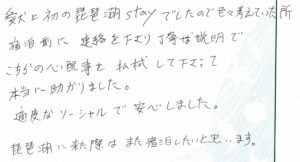 愛犬と初の琵琶湖stayでしたので色々考えていた所
宿泊前に連絡を下さり丁寧な説明で
こちらの心配事を払拭して下さって
本当に助かりました。
適度なソーシャルで安心しました。
琵琶湖に来た際はまた宿泊したいと思います。